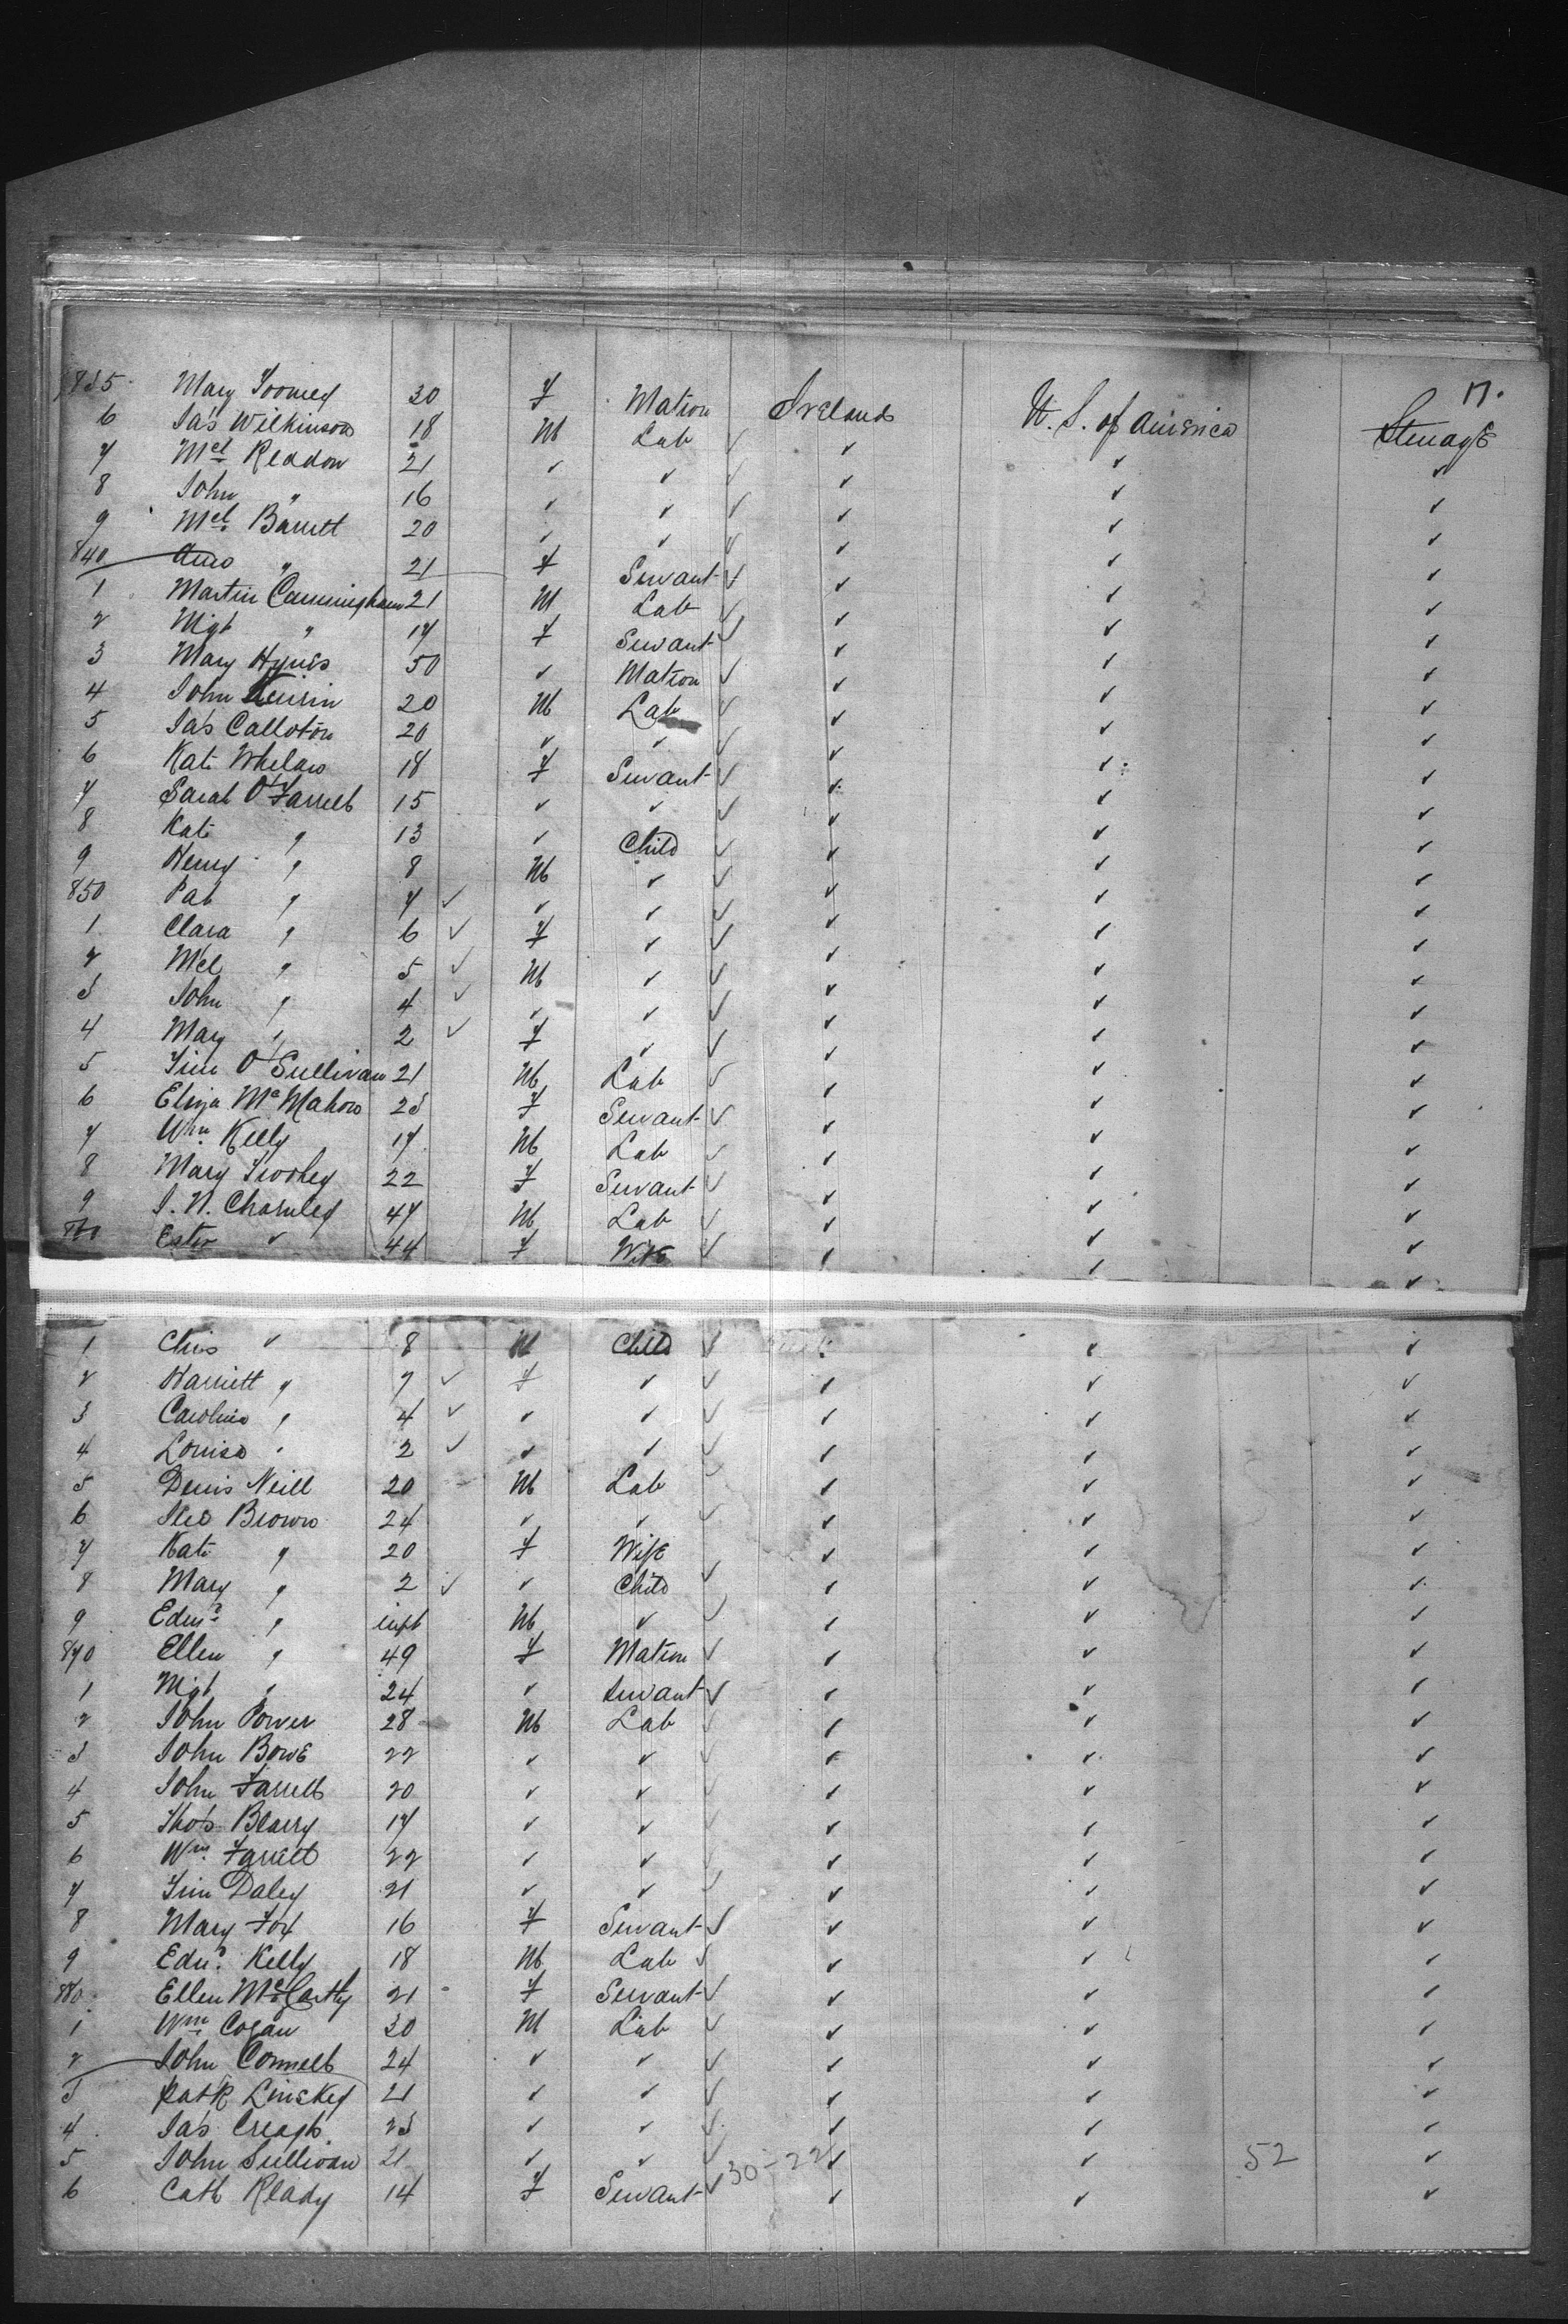 17.
835 Mary Toomey 30 F Matron Ireland U. S. of America Steerage
6 Jas Wilkinson 18 M Lab ✓ ✓ ✓ ✓
7 Ml Reddon 21 ✓ ✓ ✓ ✓ ✓ ✓
8 John " 16 ✓ ✓ ✓ ✓ ✓ ✓
9 Ml Barrett 20 ✓ ✓ ✓ ✓ ✓ ✓
840 Ann " 21 F Servant ✓ ✓ ✓ ✓
1 Martin Cunningham 21 M Lab ✓ ✓ ✓ ✓
2 Mgt " 17 F Servant ✓ ✓ ✓ ✓
3 Mary Hynes 50 ✓ Matron ✓ ✓ ✓ ✓
4 John 20 M Lab ✓ ✓ ✓ ✓
5 Jas Calloton 20 ✓ ✓ ✓ ✓ ✓ ✓
6 Kate Whelan 18 F Servant ✓ ✓ ✓ ✓
7 Sarah O'Farrell 15 ✓ ✓ ✓ ✓ ✓ ✓
8 Kate " 13 ✓ Child ✓ ✓ ✓ ✓
9 Henry " 8 M ✓ ✓ ✓ ✓ ✓
850 Pat " 7 ✓ ✓ ✓ ✓ ✓ ✓ ✓
1 Clara " 6 ✓ F ✓ ✓ ✓ ✓ ✓
2 Ml " 5 ✓ M ✓ ✓ ✓ ✓ ✓
3 John " 4 ✓ ✓ ✓ ✓ ✓ ✓ ✓
4 Mary " 2 ✓ F ✓ ✓ ✓ ✓ ✓
5 Tim O'Sullivan 21 M Lab ✓ ✓ ✓ ✓
6 Eliza McMahon 23 F Servant ✓ ✓ ✓ ✓
7 Wm Kelly 17 M Lab ✓ ✓ ✓ ✓
8 Mary 22 F Servant ✓ ✓ ✓ ✓
9 J. N. Charnley 47 M Lab ✓ ✓ ✓ ✓
860 Ester ✓ 44 F Wife ✓ ✓ ✓ ✓
1 Chas ✓ 8 M Child ✓ ✓ ✓ ✓
2 Harriett " 7 ✓ F ✓ ✓ ✓ ✓ ✓
3 Caroline " 4 ✓ ✓ ✓ ✓ ✓ ✓ ✓
4 Louisa " 2 ✓ ✓ ✓ ✓ ✓ ✓ ✓
5 Denis Neill 20 M Lab ✓ ✓ ✓ ✓
6 Brown 24 ✓ ✓ ✓ ✓ ✓ ✓
7 Kate " 20 F Wife ✓ ✓ ✓
8 Mary " 2 ✓ ✓ Child ✓ ✓ ✓ ✓
9 Edmd " inft M ✓ ✓ ✓ ✓ ✓
870 Ellen " 49 F Matron ✓ ✓ ✓ ✓
1 Mgt " 24 ✓ Servant ✓ ✓ ✓ ✓
2 John Power 28 M Lab ✓ ✓ ✓ ✓
3 John Bowe 22 ✓ ✓ ✓ ✓ ✓ ✓
4 John Farrell 20 ✓ ✓ ✓ ✓ ✓ ✓
5 Thos 17 ✓ ✓ ✓ ✓ ✓ ✓
6 Wm Farrell 22 ✓ ✓ ✓ ✓ ✓ ✓
7 Tim Daley 21 ✓ ✓ ✓ ✓ ✓ ✓
8 Mary Fox 16 F Servant ✓ ✓ ✓ ✓
9 Edwd Kelly 18 M Lab ✓ ✓ ✓ ✓
880 Ellen McCarthy 21 F Servant ✓ ✓ ✓ ✓
1 Wm Cogan 30 M Lab ✓ ✓ ✓ ✓
2 John Connell 24 ✓ ✓ ✓ ✓ ✓ ✓
3 Patk Linskey 21 ✓ ✓ ✓ ✓ ✓ ✓
4 Jas Creagh 23 ✓ ✓ ✓ ✓ ✓ ✓
5 John Sullivan 21 ✓ ✓ ✓ 30-22 ✓ ✓ 52 ✓
6 Cath Ready 14 F Servant ✓ ✓ ✓ ✓